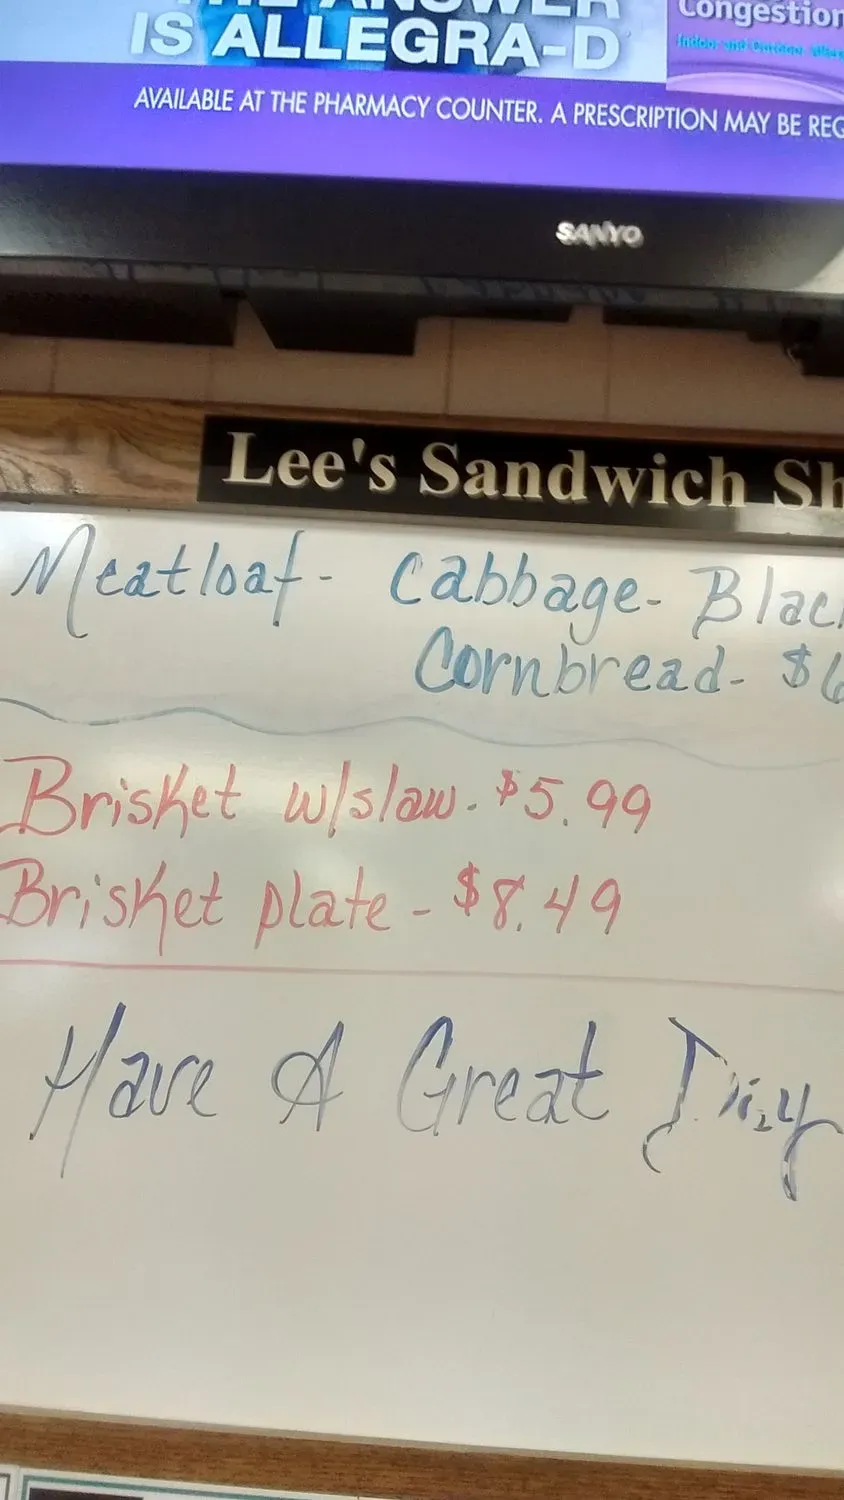 THE ANSWER
IS ALLEGRA-D
Congestion
Indoor and Outdoor
AVAILABLE AT THE PHARMACY COUNTER. A PRESCRIPTION MAY BE REQ
SANYO
Lee's Sandwich Sh
Meatloaf - Cabbage - Blac
Cornbread - $6
Brisket w/slaw - $5.99
Brisket plate - $8.49
Have A Great Day